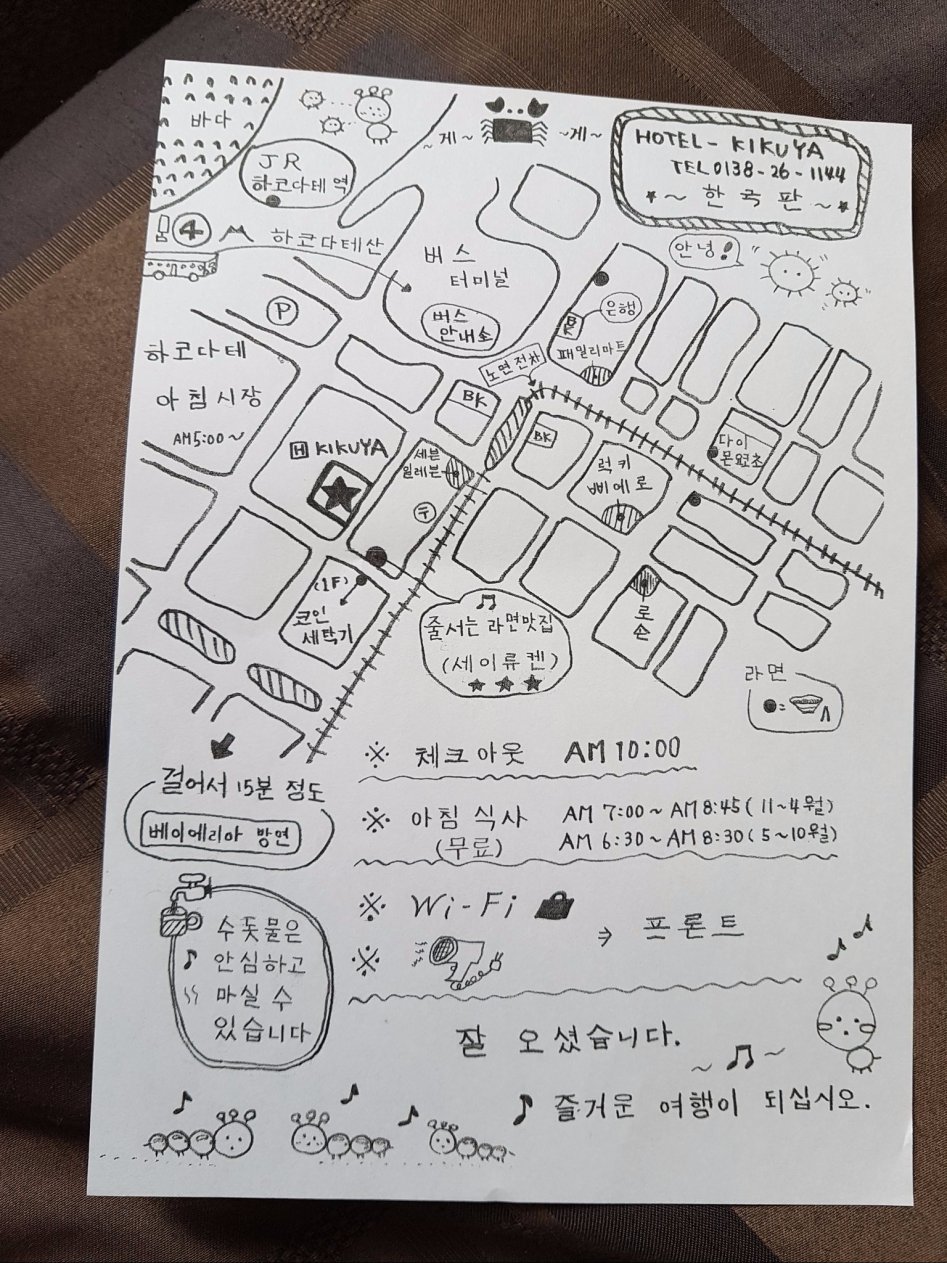 바다
JR
하코다테역
~게~
~게~
HOTEL - KIKUYA
TEL 0138-26-1144
★~ 한국판 ~★
안녕!
4
하코다테산
버스
터미널
버스
안내소
P
은행
BK
패밀리마트
노면전차
하코다테
아침시장
AM5:00~
BK
H KIKUYA
세븐
일레븐
BK
럭키
삐에로
다이
몬요쵸
(1F)
코인
세탁기
줄서는 라면맛집
(세이류켄)
★ ★ ★
로손
라면
※ 체크아웃 AM 10:00
걸어서 15분 정도
베이에리아 방면
※ 아침 식사 AM 7:00~AM 8:45(11~4월)
(무료) AM 6:30~AM 8:30(5~10월)
※ Wi-Fi
※
→ 프론트
수돗물은
안심하고
마실 수
있습니다
잘 오셨습니다.
즐거운 여행이 되십시오.